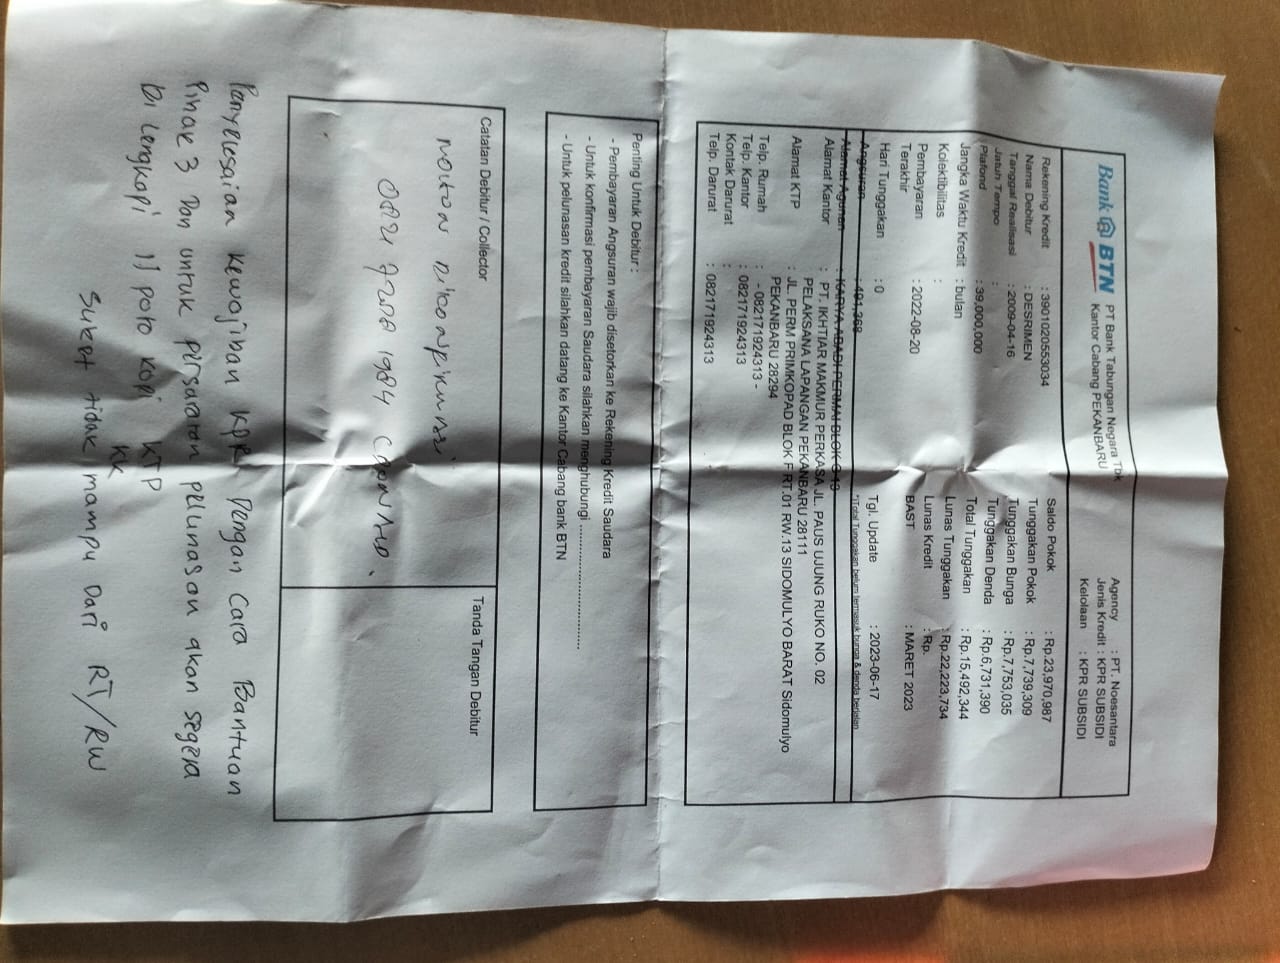 Bank BTN
PT Bank Tabungan Negara Tbk
Kantor Cabang PEKANBARU
Agency : PT. Noesantara
Jenis Kredit : KPR SUBSIDI
Kelolaan : KPR SUBSIDI
Rekening Kredit : 3901020553034
Nama Debitur : DESRIMEN
Tanggal Realisasi : 2009-04-16
Jatuh Tempo :
Plafond : 39,000,000
Jangka Waktu Kredit : bulan
Kolektibilitas :
Pembayaran Terakhir : 2022-08-20
Hari Tunggakan : 0
Angsuran : 491,368
Saldo Pokok : Rp.23,970,987
Tunggakan Pokok : Rp.7,739,309
Tunggakan Bunga : Rp.7,753,035
Tunggakan Denda : Rp.6,731,390
Total Tunggakan : Rp.15,492,344
Lunas Tunggakan : Rp.22,223,734
Lunas Kredit : Rp.
BAST : MARET 2023
Tgl. Update : 2023-06-17
*)Total Tunggakan belum termasuk bunga & denda berjalan
Alamat Agunan : KARYA ABADI PERMAI BLOK G 19
Alamat Kantor : PT. IKHTIAR MAKMUR PERKASA JL. PAUS UJUNG RUKO NO. 02
PELAKSANA LAPANGAN PEKANBARU 28111
Alamat KTP : JL. PERM PRIMKOPAD BLOK F RT.01 RW.13 SIDOMULYO BARAT Sidomulyo
PEKANBARU 28294
Telp. Rumah : - 082171924313 -
Telp. Kantor : 082171924313
Kontak Darurat :
Telp. Darurat : 082171924313
Penting Untuk Debitur :
- Pembayaran Angsuran wajib disetorkan ke Rekening Kredit Saudara
- Untuk konfirmasi pembayaran Saudara silahkan menghubungi ..............................
- Untuk pelunasan kredit silahkan datang ke Kantor Cabang bank BTN
Catatan Debitur / Collector
Tanda Tangan Debitur
Mohon
Penyelesaian kewajiban KPR Dengan Cara Bantuan
Pihak 3 Dan untuk persaratan pelunasan akan segera
Di Lengkapi // Poto Kopi KTP
KK
Suket tidak mampu Dari RT/RW